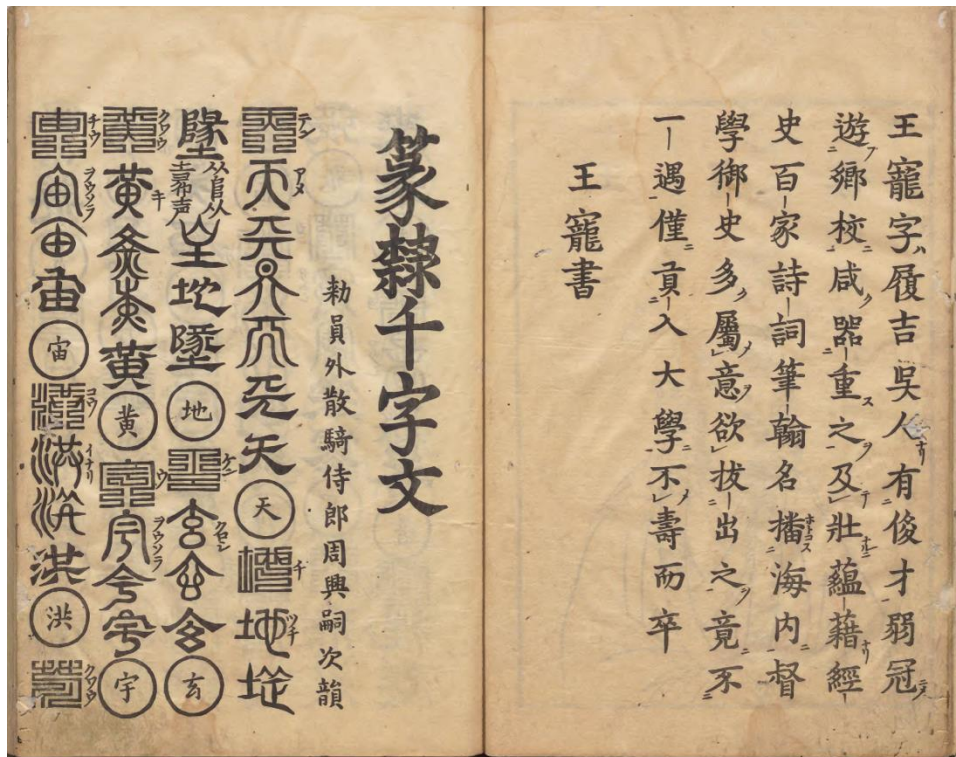 王寵字履吉吳人有俊才弱冠
遊鄉校咸器重之及壯蘊藉經
史百家詩詞筆翰名播海内督
學御史多屬意欲拔出之竟不
一遇僅貢入大學不壽而卒
王寵書
篆隸千字文
勑員外散騎侍郎周興嗣次韻
天天天天天天天天地地地
墬坔地墜地玄玄玄玄玄
黃黃黃黃黃黃宇宇宇宇宇
宙宙宙宙宙洪洪洪洪洪荒